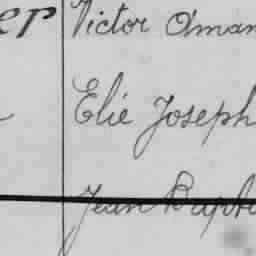 er Victor Aman
Elie Joseph
Jean Bapti